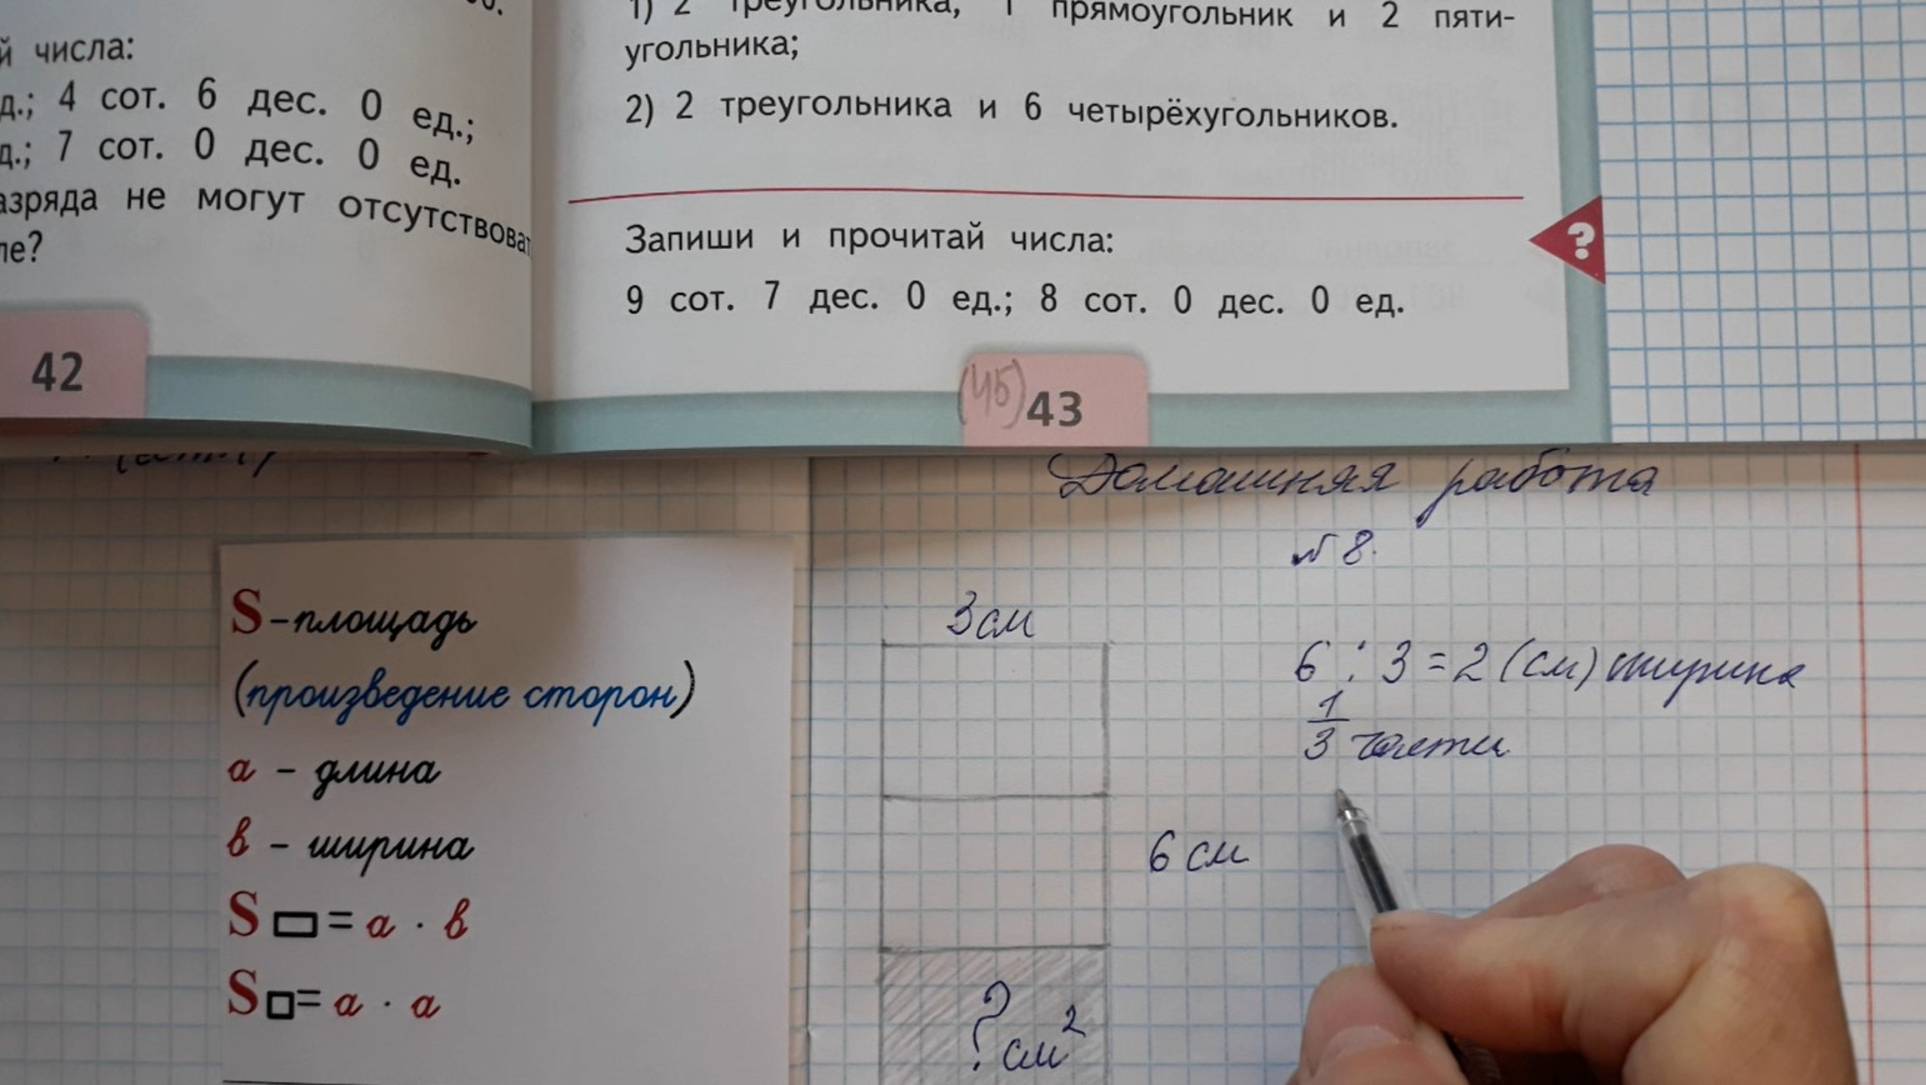 й числа:
д.; 4 сот. 6 дес. 0 ед.;
д.; 7 сот. 0 дес. 0 ед.
азряда не могут отсутствоват
ле?
42
1) 2 треугольника, 1 прямоугольник и 2 пяти-
угольника;
2) 2 треугольника и 6 четырёхугольников.
Запиши и прочитай числа:
?
9 сот. 7 дес. 0 ед.; 8 сот. 0 дес. 0 ед.
(45) 43
Домашняя работа
№ 8.
S - площадь
(произведение сторон)
a - длина
в - ширина
S ▭ = a · в
S □ = a · a
3 см
6 см
? см²
6 : 3 = 2 (см) ширина
1/3 части